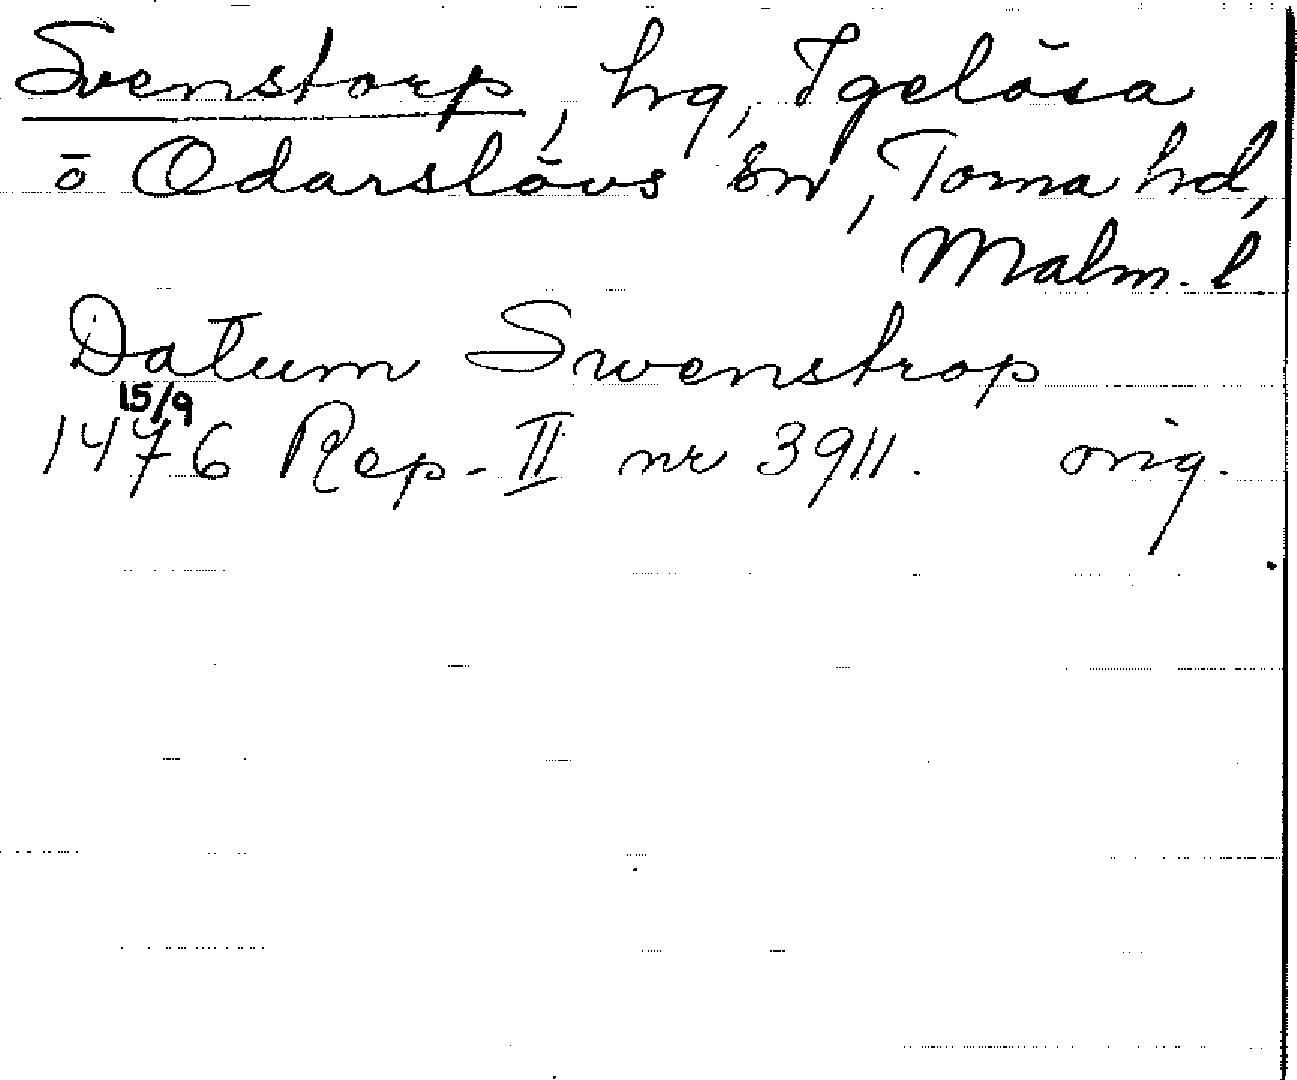 Svenstorp, hg, Igelösa
ō Odarslövs sn, Torna hd,
Malm. l
Datum Swenstrop
15/9
1476 Rep. II nr 3911. orig.